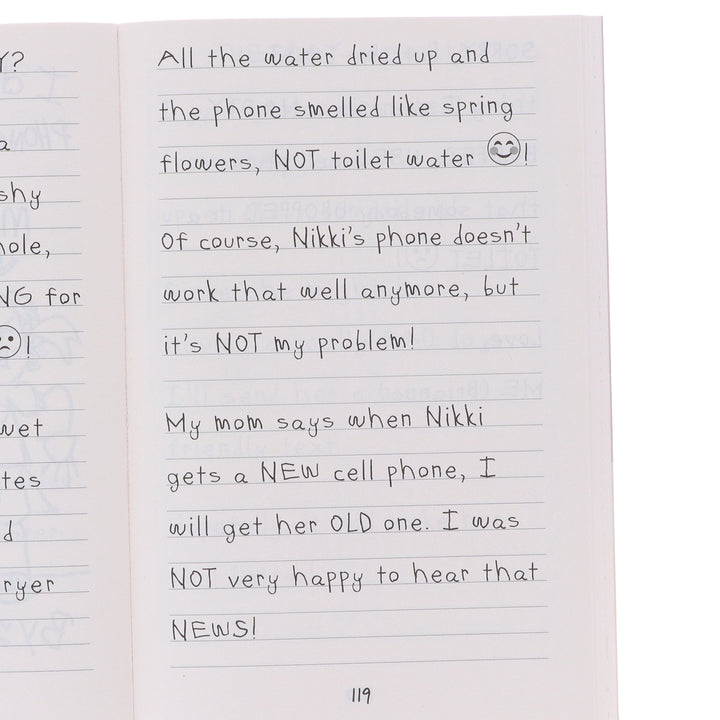 Y?
a
shy
hole,
NG for
!
wet
tes
d
ryer
All the water dried up and
the phone smelled like spring
flowers, NOT toilet water 😊!
Of course, Nikki's phone doesn't
work that well anymore, but
it's NOT my problem!
My mom says when Nikki
gets a NEW cell phone, I
will get her OLD one. I was
NOT very happy to hear that
NEWS!
119